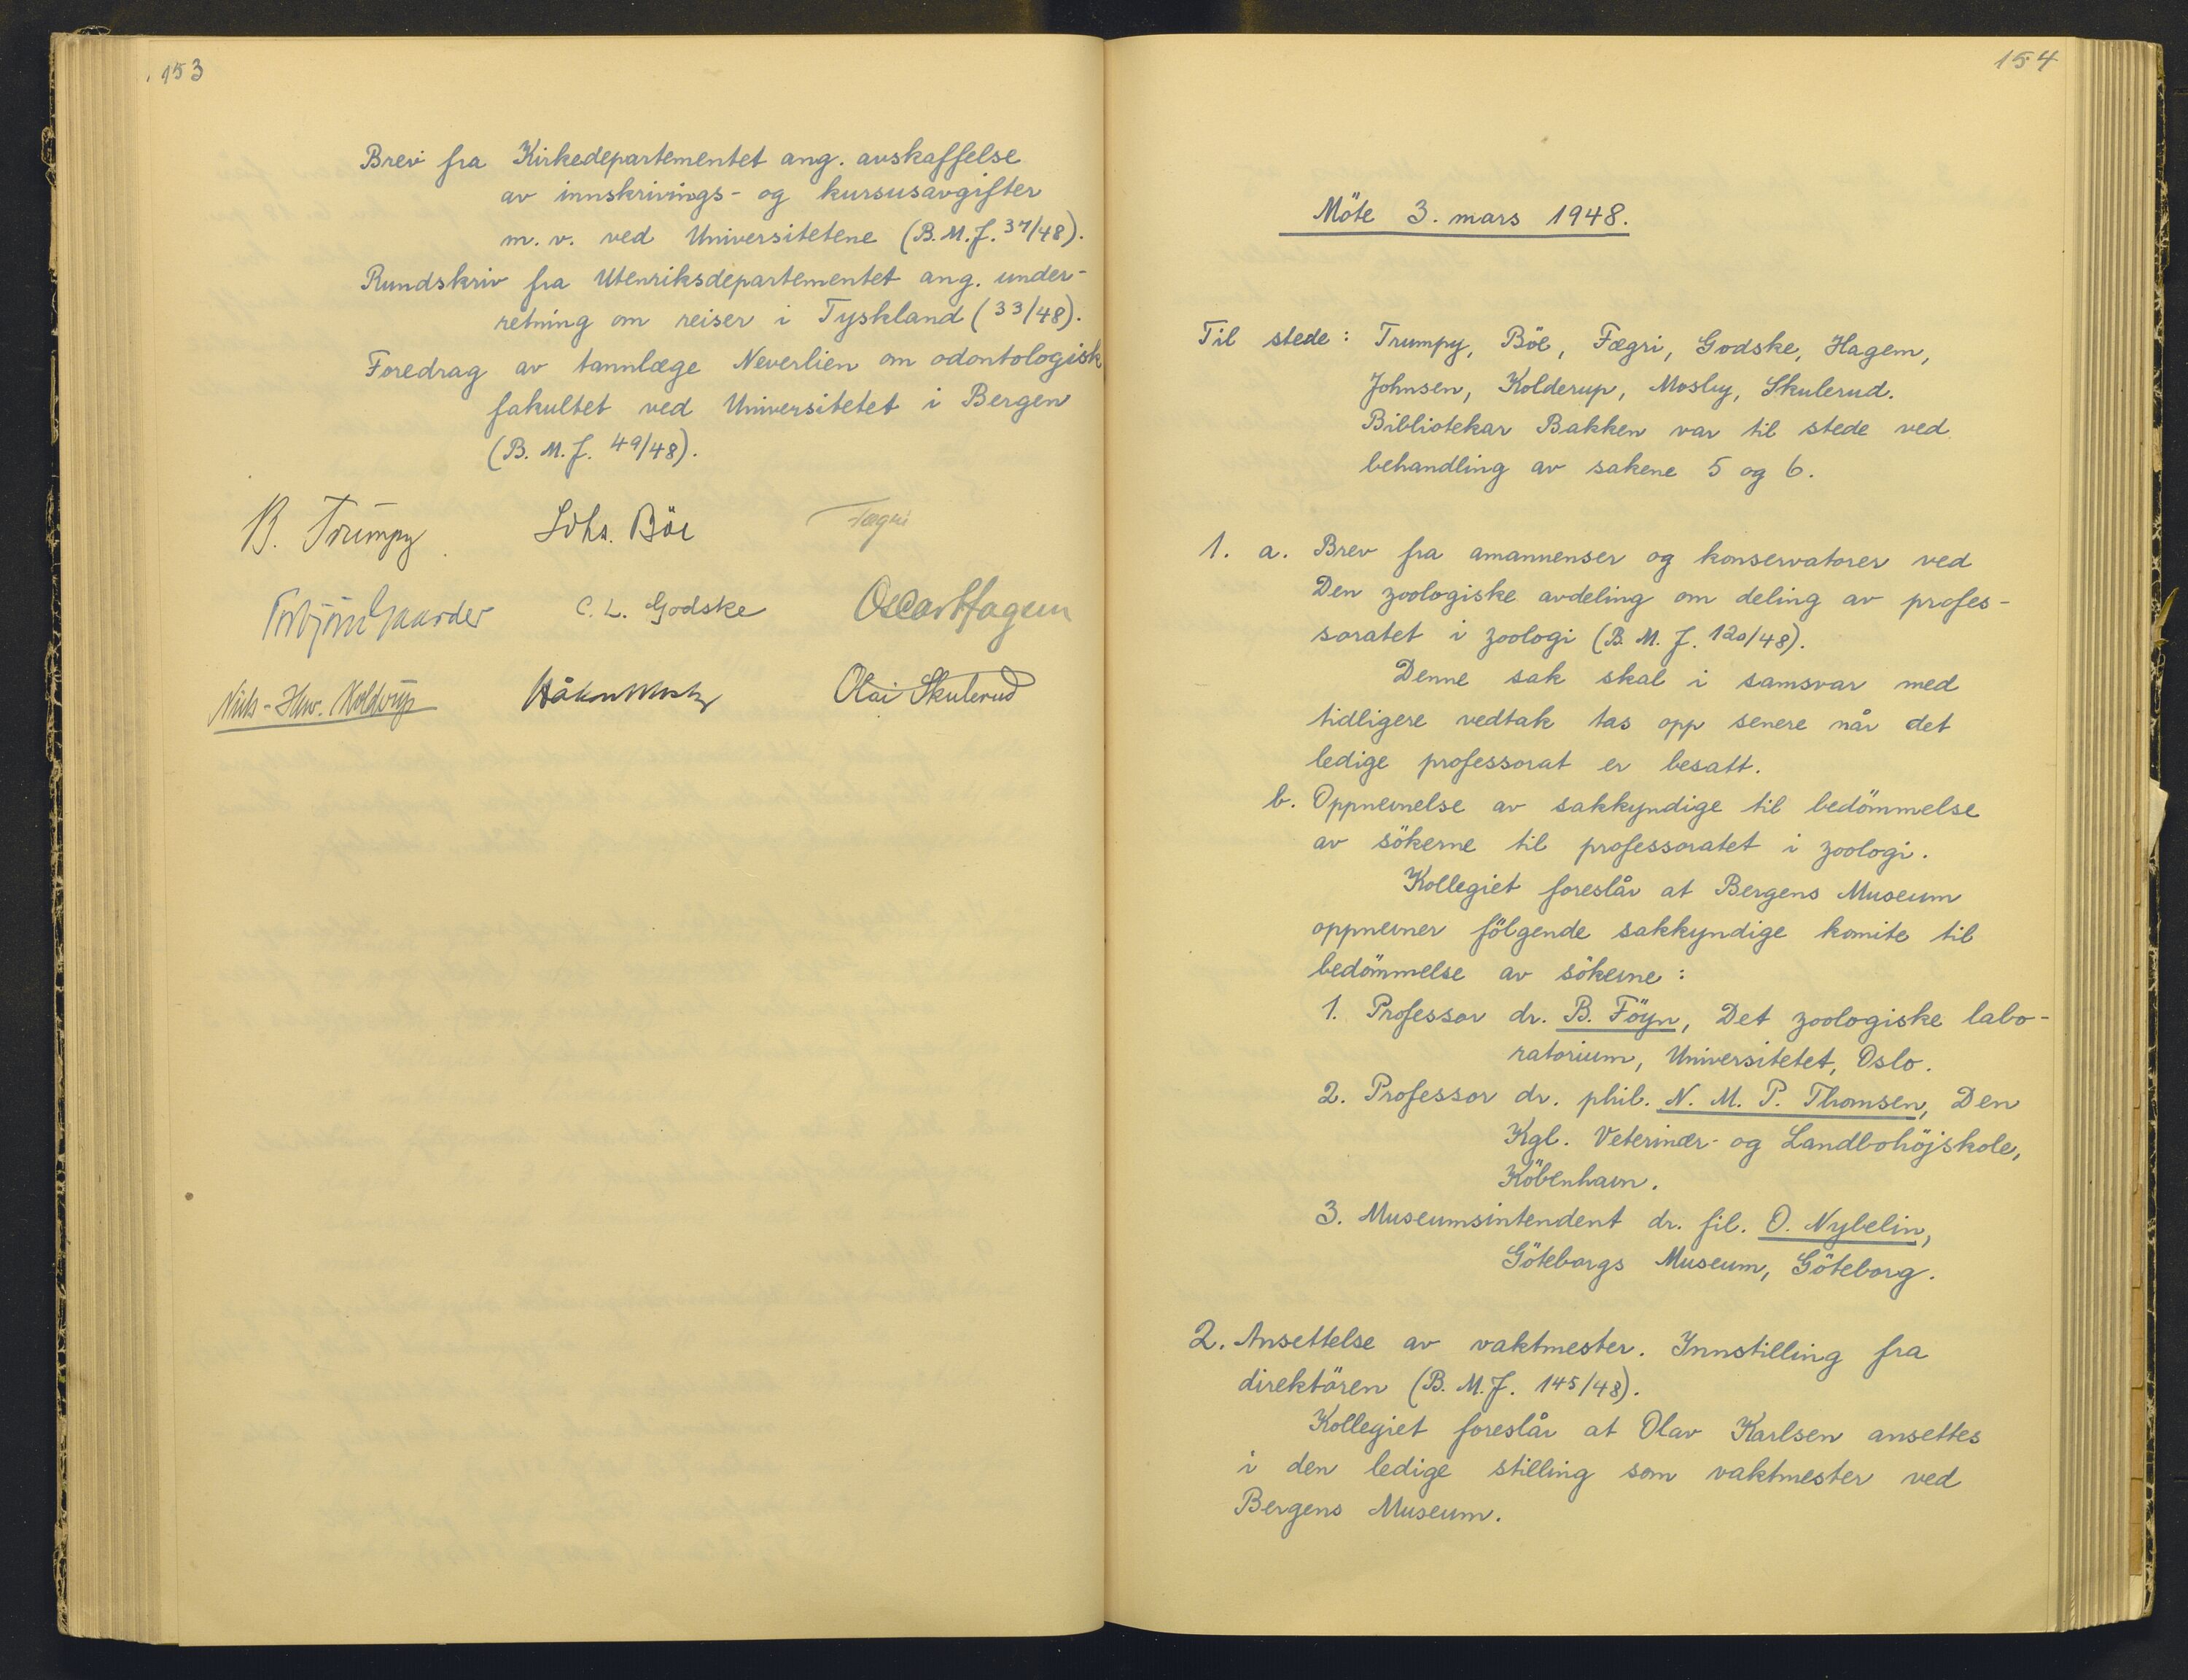 153
Brev fra Kirkedepartementet ang. avskaffelse
av innskrivings- og kursusavgifter
m. v. ved Universitetene (B.M.J. 37/48).
Rundskriv fra Utenriksdepartementet ang. under-
retning om reiser i Tyskland (33/48).
Foredrag av tannlæge Neverlien om odontologisk
fakultet ved Universitetet i Bergen
(B. M. J. 49/48).
B. Trumpy Johs. Böe Fægri
Torbjörn Gaarder C. L. Godske Oscar Hagem
Niels-Henr. Kolderup Håkon Mosby Olai Skulerud
154
Möte 3. mars 1948.
Til stede: Trumpy, Böe, Fægri, Godske, Hagem,
Johnsen, Kolderup, Mosby, Skulerud.
Bibliotekar Bakken var til stede ved
behandling av sakene 5 og 6.
1. a. Brev fra amanuenser og konservatorer ved
Den zoologiske avdeling om deling av profes-
soratet i zoologi (B. M. J. 120/48).
Denne sak skal i samsvar med
tidligere vedtak tas opp senere når det
ledige professorat er besatt.
b. Oppnevnelse av sakkyndige til bedömmelse
av sökerne til professoratet i zoologi.
Kollegiet foreslår at Bergens Museum
oppnevner fölgende sakkyndige komite til
bedömmelse av sökerne:
1. Professor dr. B. Föyn, Det zoologiske labo-
ratorium, Universitetet, Oslo.
2. Professor dr. phil. N. M. P. Thomsen, Den
Kgl. Veterinær- og Landbohöjskole,
Köbenhavn.
3. Museumsintendent dr. fil. O. Nybelin,
Göteborgs Museum, Göteborg.
2. Ansettelse av vaktmester. Innstilling fra
direktören (B. M. J. 145/48).
Kollegiet foreslår at Olav Karlsen ansettes
i den ledige stilling som vaktmester ved
Bergens Museum.